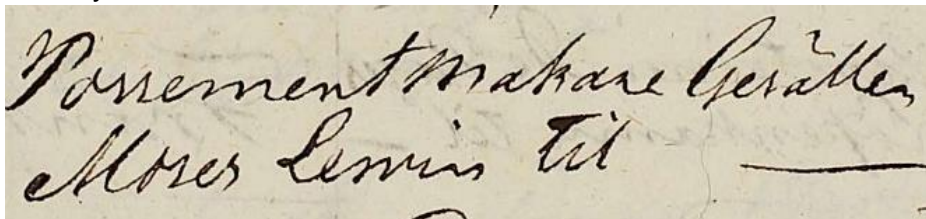 Possement Makare Gesällen
Moses Lewin Til —